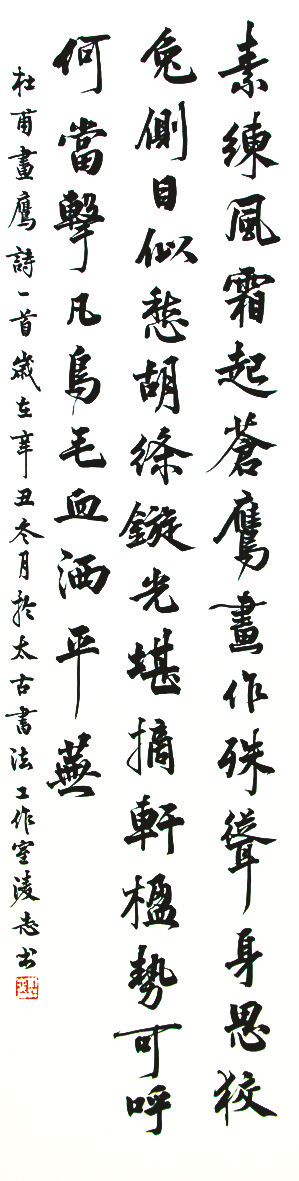 素練風霜起蒼鷹畫作殊聳身思狡
兔側目似愁胡絛鏇光堪摘軒楹勢可呼
何當擊凡鳥毛血洒平蕪
杜甫畫鷹詩一首歲在辛丑冬月於太古書法工作室淩志书